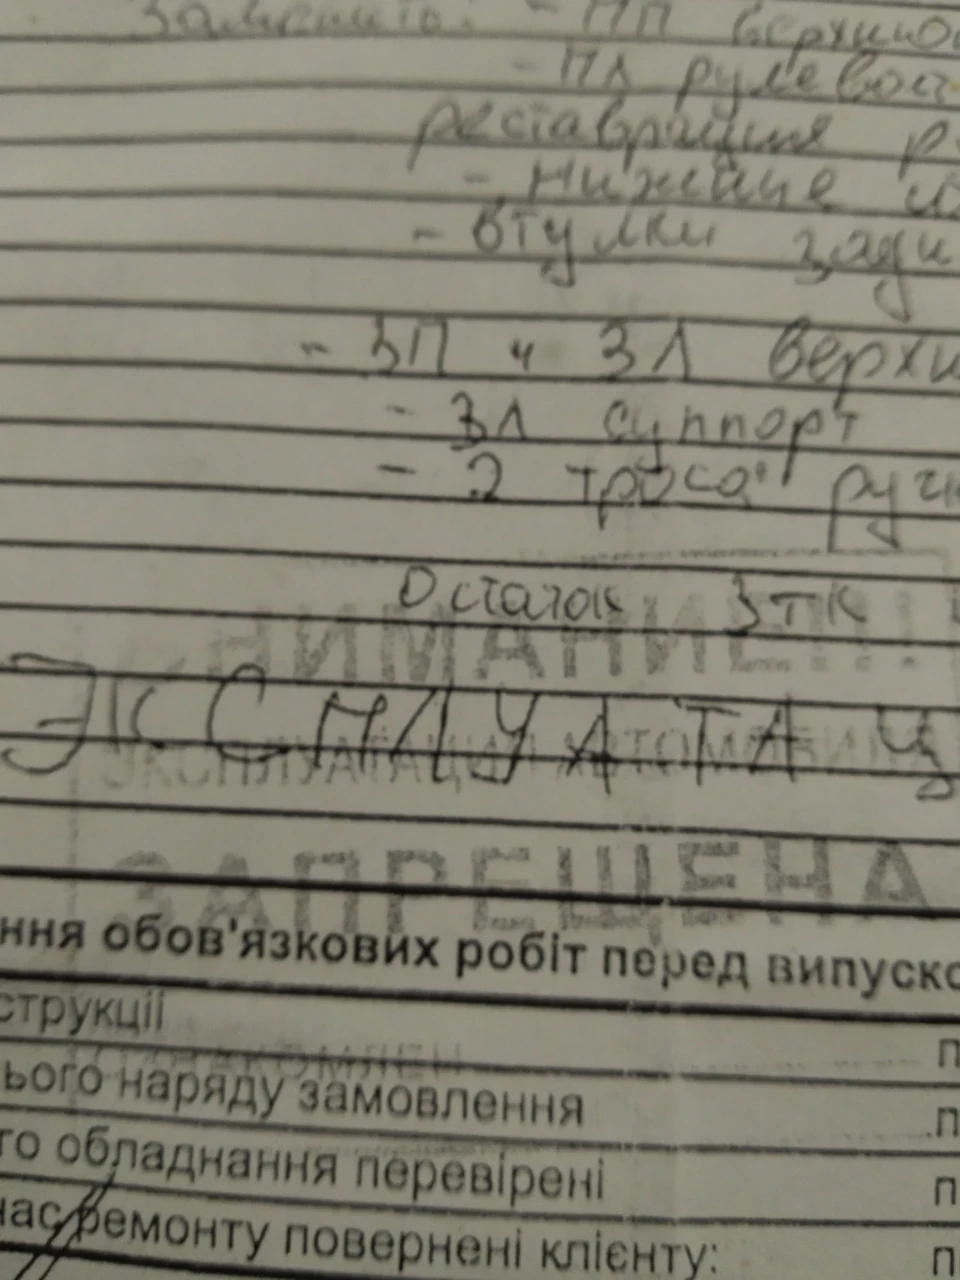 Заменить: - ПП верхню
- ПЛ рулевой
реставрация р
- нижние
- втулки задн
- ЗП и ЗЛ верхн
- ЗЛ суппорт
- 2 троса ручн
Остаток ЗТК
ВНИМАНИЕ!!!
ЭКСПЛУАТАЦ
ЭКСПЛУАТАЦИЯ АВТОМОБИЛЯ
ЗАПРЕЩЕНА
ння обов'язкових робіт перед випуско
струкції п
ОЗНАКОМЛЕН
ього наряду замовлення п
го обладнання перевірені п
час ремонту повернені клієнту: п